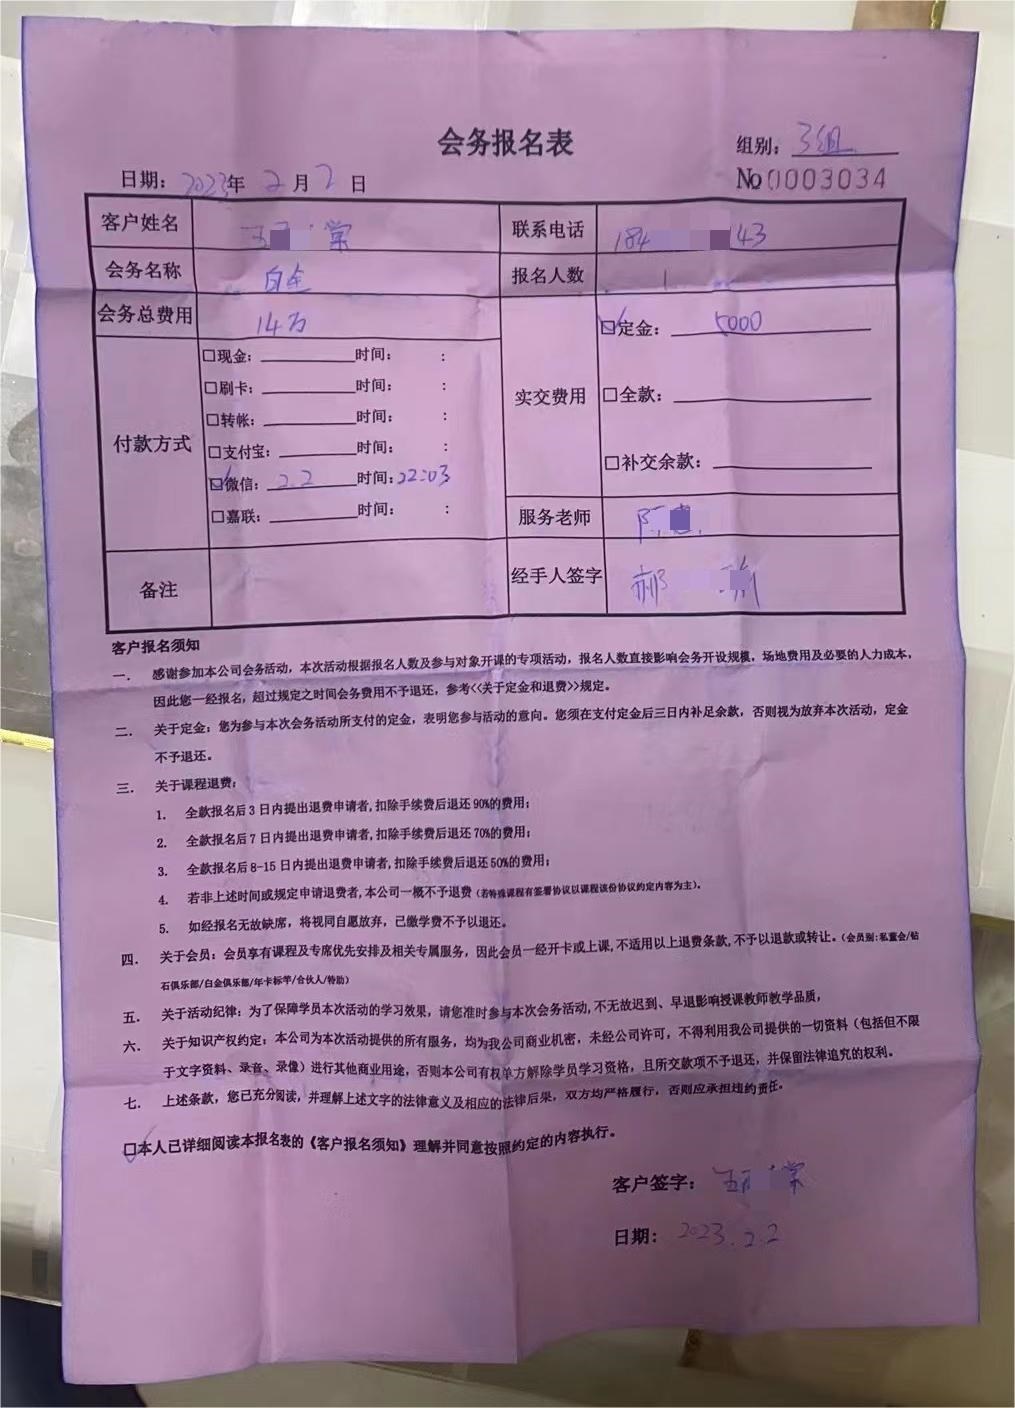 会务报名表
组别：3组
日期：2023年 2 月 2 日
No 0003034
客户姓名 王 棠 联系电话 184 43
会务名称 白金 报名人数 1
会务总费用 14万 实交费用 ☑定金：5000
付款方式 □现金： 时间： ：
□刷卡： 时间： ：
□全款：
□转帐： 时间： ：
□支付宝： 时间： ：
□补交余款：
☑微信：2.2 时间：22:03
□嘉联： 时间： ：
服务老师 陈
备注 经手人签字 郝
客户报名须知
一. 感谢参加本公司会务活动，本次活动根据报名人数及参与对象开课的专项活动，报名人数直接影响会务开设规模，场地费用及必要的人力成本，
因此您一经报名，超过规定之时间会务费用不予退还，参考<<关于定金和退费>>规定。
二. 关于定金：您为参与本次会务活动所支付的定金，表明您参与活动的意向。您须在支付定金后三日内补足余款，否则视为放弃本次活动，定金
不予退还。
三. 关于课程退费：
1. 全款报名后3日内提出退费申请者,扣除手续费后退还90%的费用；
2. 全款报名后7日内提出退费申请者,扣除手续费后退还70%的费用；
3. 全款报名后8-15日内提出退费申请者,扣除手续费后退还50%的费用；
4. 若非上述时间或规定申请退费者,本公司一概不予退费（若特殊课程有签署协议以课程该份协议约定内容为主）。
5. 如经报名无故缺席，将视同自愿放弃，已缴学费不予以退还。
四. 关于会员：会员享有课程及专席优先安排及相关专属服务，因此会员一经开卡或上课,不适用以上退费条款,不予以退款或转让。（会员别:私董会/钻
石俱乐部/白金俱乐部/年卡标竿/合伙人/特助）
五. 关于活动纪律：为了保障学员本次活动的学习效果，请您准时参与本次会务活动,不无故迟到、早退影响授课教师教学品质，
六. 关于知识产权约定：本公司为本次活动提供的所有服务，均为我公司商业机密，未经公司许可，不得利用我公司提供的一切资料（包括但不限
于文字资料、录音、录像）进行其他商业用途，否则本公司有权单方解除学员学习资格，且所交款项不予退还，并保留法律追究的权利。
七. 上述条款，您已充分阅读，并理解上述文字的法律意义及相应的法律后果，双方均严格履行，否则应承担违约责任。
☑本人已详细阅读本报名表的《客户报名须知》理解并同意按照约定的内容执行。
客户签字：王 棠
日期：2023.2.2